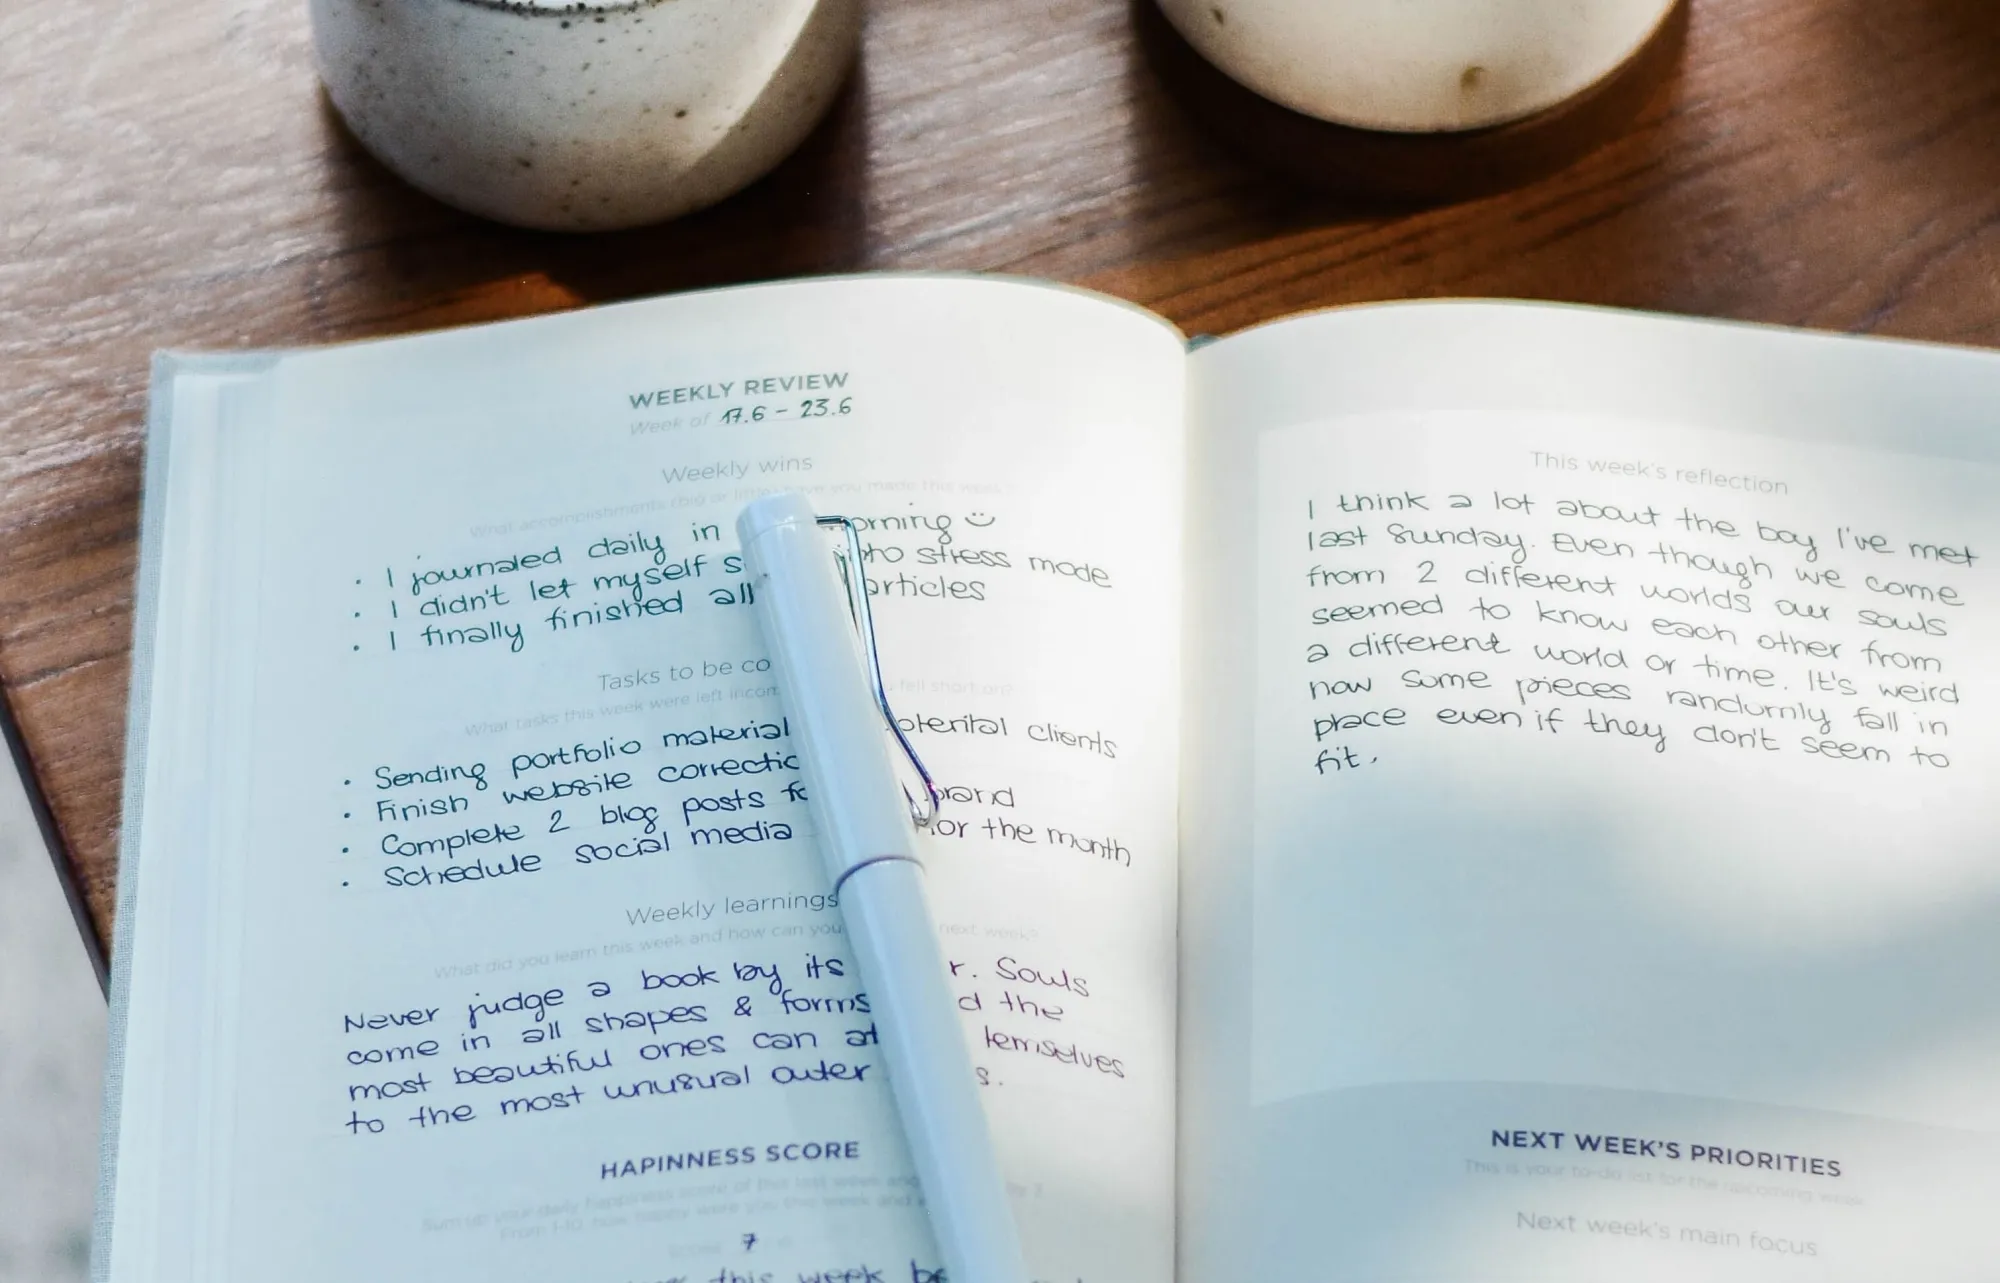 WEEKLY REVIEW
Week of 17.6 - 23.6
Weekly wins
What accomplishments (big or little) have you made this week?
• I journaled daily in orning
• I didn't let myself s into stress mode
• I finally finished all articles
Tasks to be co
What tasks this week were left incom u fell short on?
• Sending portfolio material otential clients
• Finish website correctio
• Complete 2 blog posts fo brand
• Schedule social media for the month
Weekly learnings
What did you learn this week and how can you next week?
Never judge a book by its r. Souls
come in all shapes & forms d the
most beautiful ones can at temselves
to the most unusual outer s.
HAPINNESS SCORE
Sum up your daily happiness score of this last week and
From 1-10, how happy were you this week and
7
this week be
This week's reflection
I think a lot about the boy I've met
last Sunday. Even though we come
from 2 different worlds our souls
seemed to know each other from
a different world or time. It's weird
how some pieces randomly fall in
place even if they don't seem to
fit.
NEXT WEEK'S PRIORITIES
This is your to-do list for the upcoming week
Next week's main focus